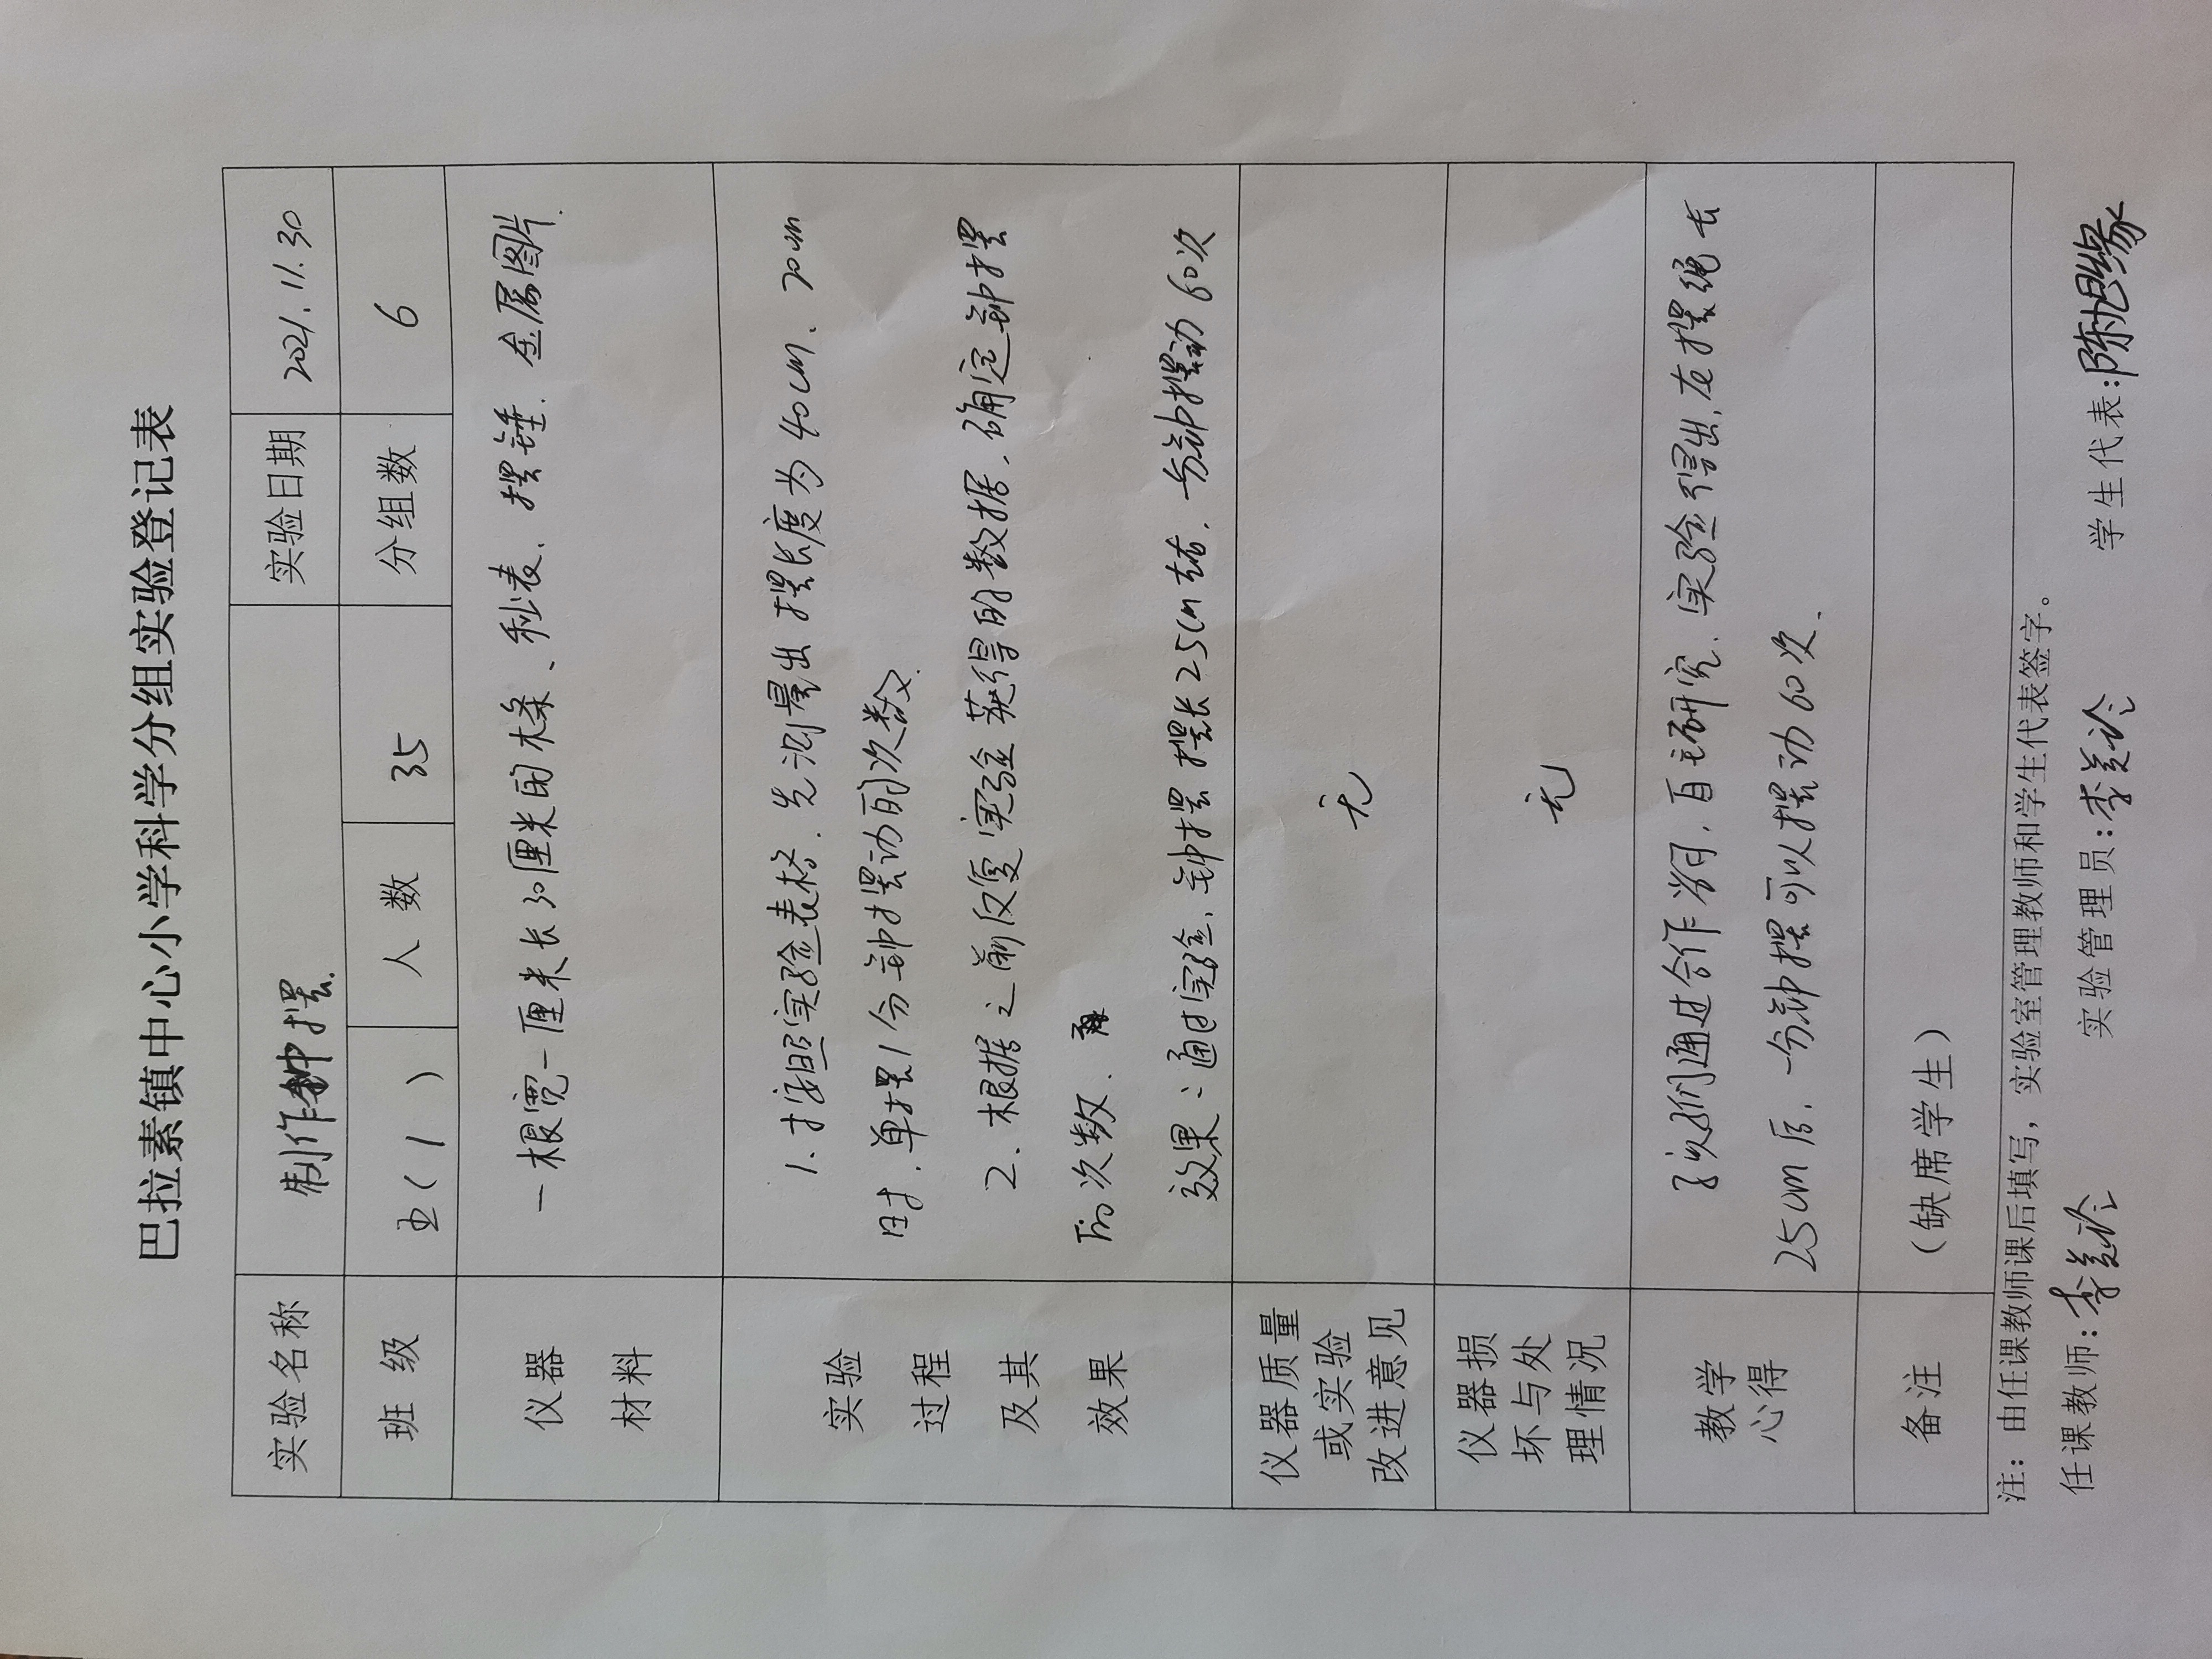 巴拉素镇中心小学科学分组实验登记表
实验名称 制作钟摆 实验日期 2021.11.30
班 级 五（1） 人 数 35 分组数 6
仪器
材料
一根宽一厘米长30厘米的木条、秒表、摆锤、金属图片.
实验
过程
及其
效果
1.按照实验表格.先测量出摆长度为40cm、20cm
时.单摆1分钟摆动的次数.
2.根据之前反复实验获得的数据.确定钟摆
的次数.
效果：通过实验.钟摆摆长25cm左右.一分钟摆动60次
仪器质量
或实验
改进意见
无
仪器损
坏与处
理情况
无
教学
心得
孩子们通过合作学习,自主研究.实验得出.在摆绳长
25cm后.一分钟摆可以摆动60次.
备注
（缺席学生）
注：由任课教师课后填写，实验室管理教师和学生代表签字。
任课教师： 实验管理员： 学生代表：陈旭缘